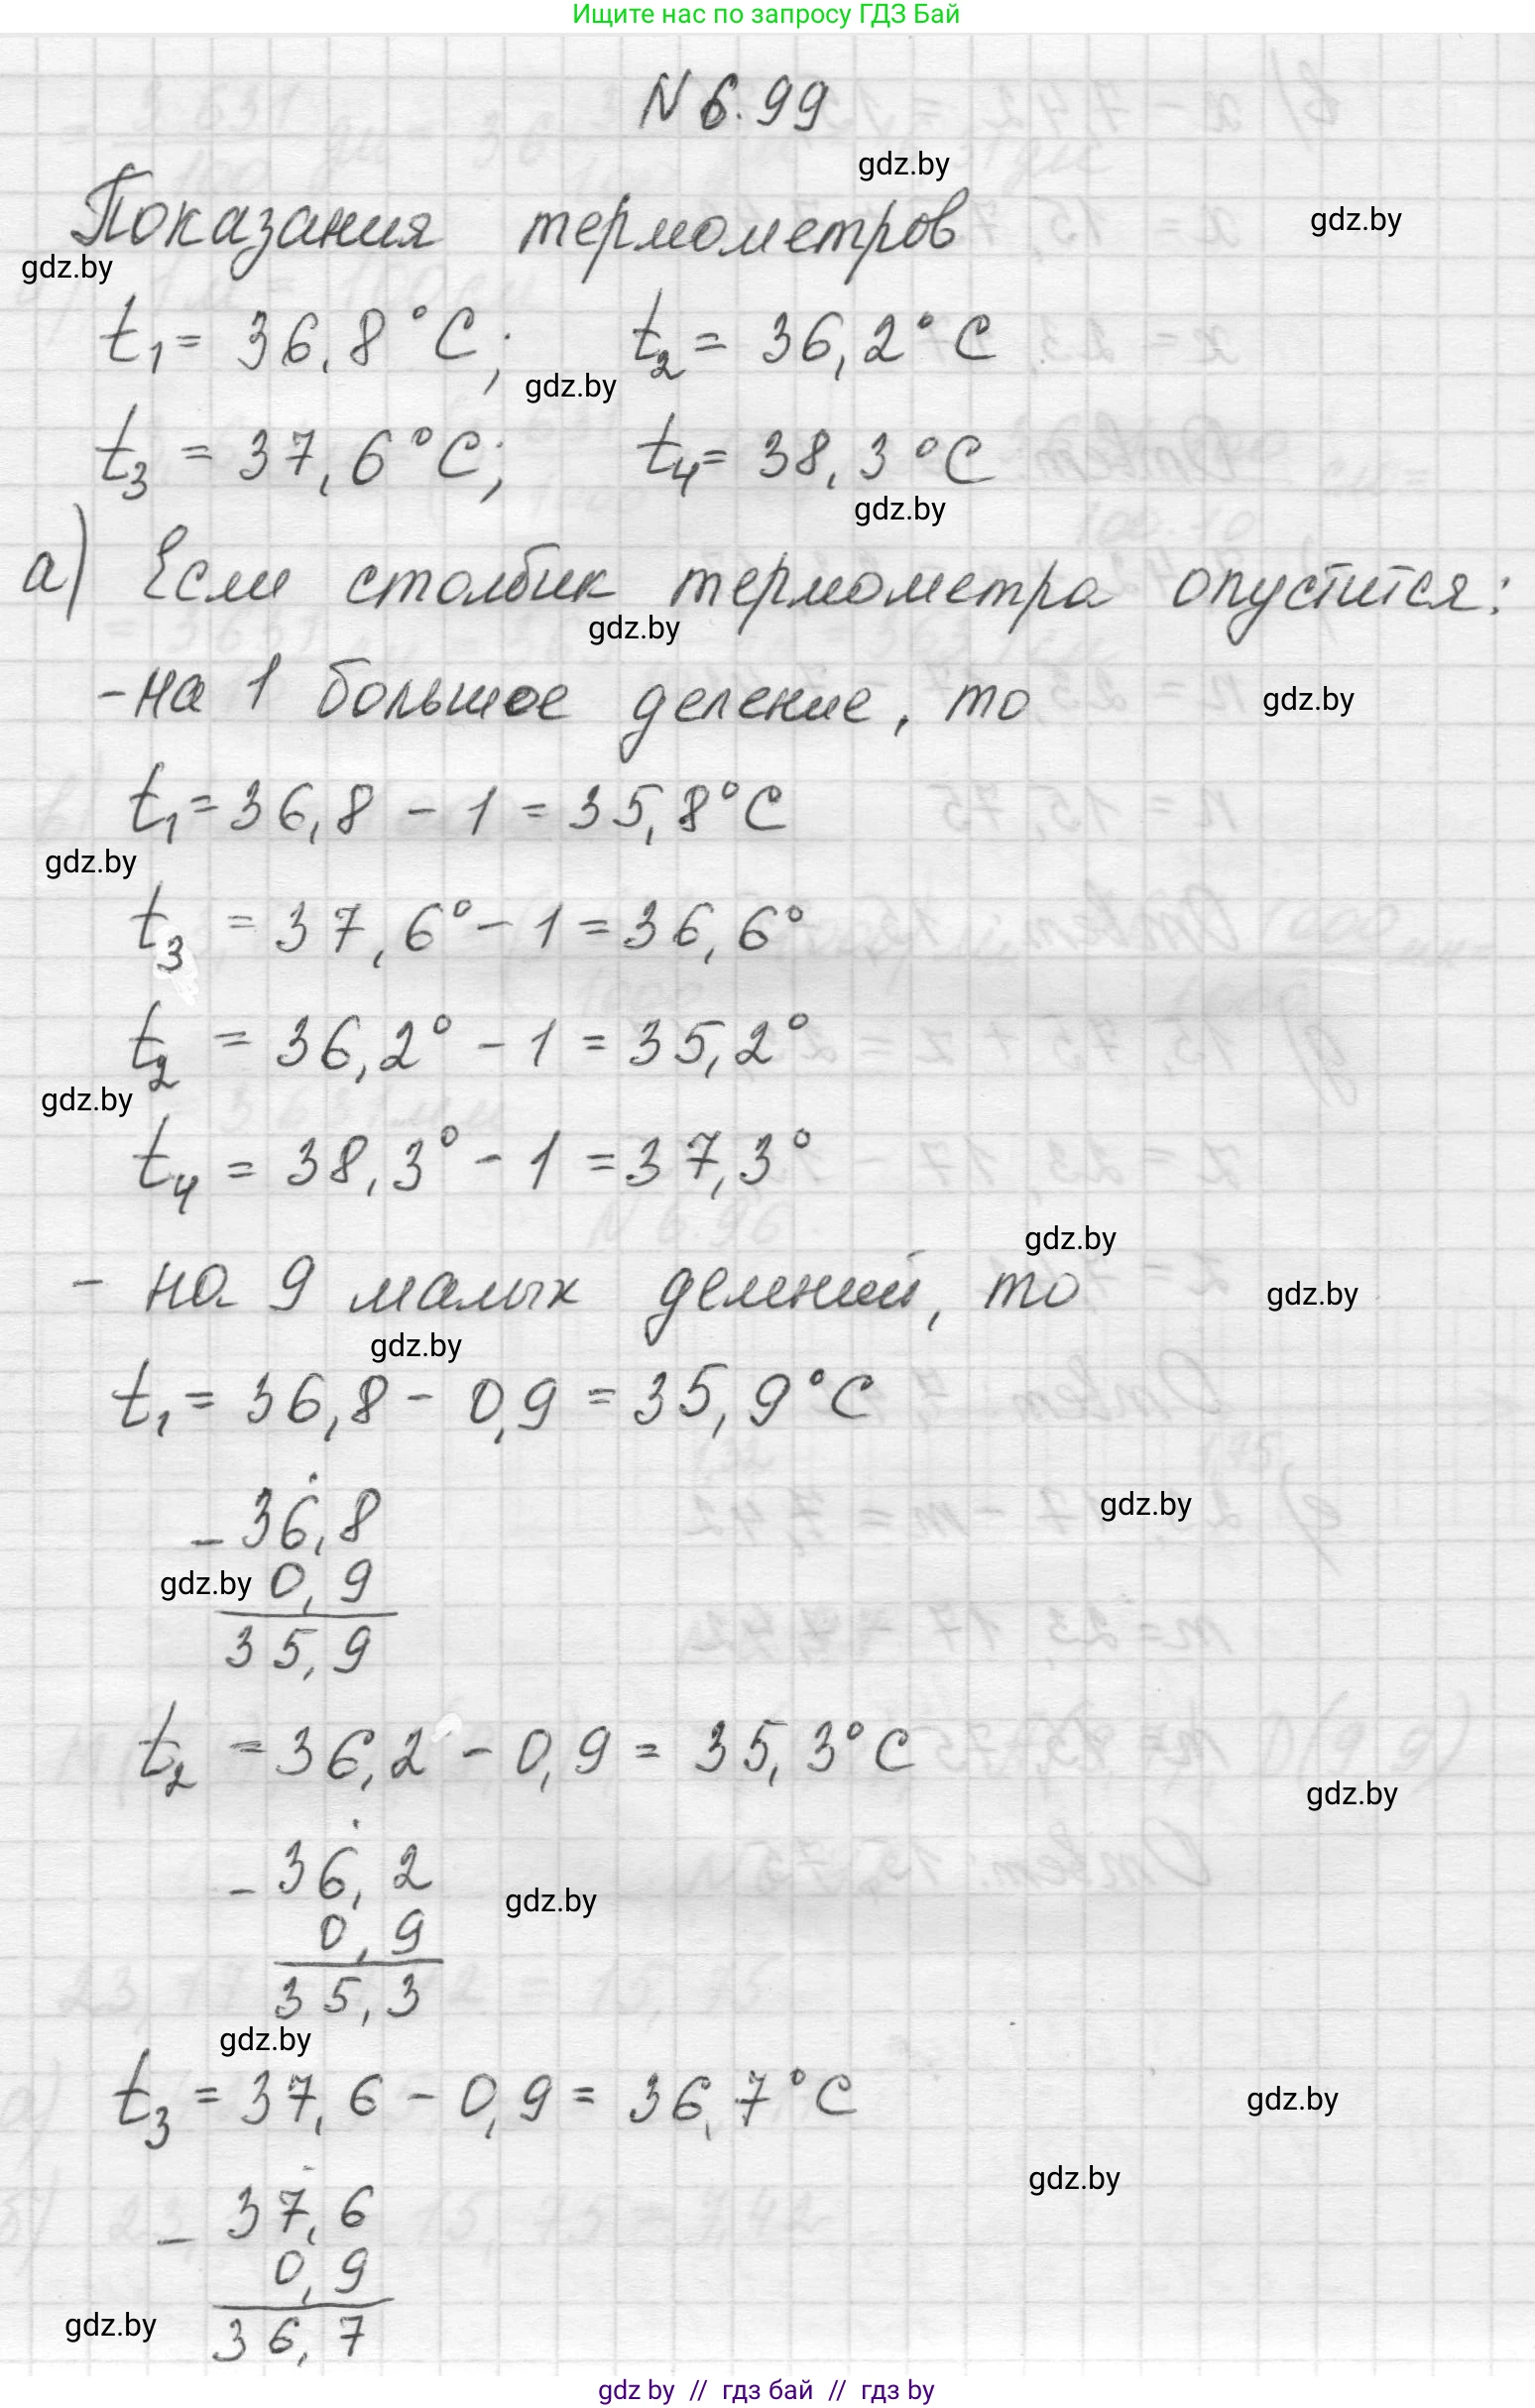 Ищите нас по запросу ГДЗ Бай
N 6.99
gdz.by
Показания термометров
gdz.by
gdz.by
t₁ = 36,8 °C; t₂ = 36,2° C
gdz.by
t₃ = 37,6 °C; t₄ = 38,3 °C
gdz.by
а) Если столбик термометра опустится:
gdz.by
- на 1 большое деление, то
gdz.by
t₁ = 36,8 - 1 = 35,8° C
gdz.by
t₃ = 37,6° - 1 = 36,6°
t₂ = 36,2° - 1 = 35,2°
gdz.by
t₄ = 38,3° - 1 = 37,3°
gdz.by
- на 9 малых делений, то
gdz.by
gdz.by
t₁ = 36,8 - 0,9 = 35,9° C
- 36,8
gdz.by
gdz.by
0,9
35,9
t₂ = 36,2 - 0,9 = 35,3° C
gdz.by
- 36,2
gdz.by
0,9
35,3
gdz.by
t₃ = 37,6 - 0,9 = 36,7° C
gdz.by
gdz.by
- 37,6
0,9
gdz.by
36,7
gdz by // гдз бай // гдз by